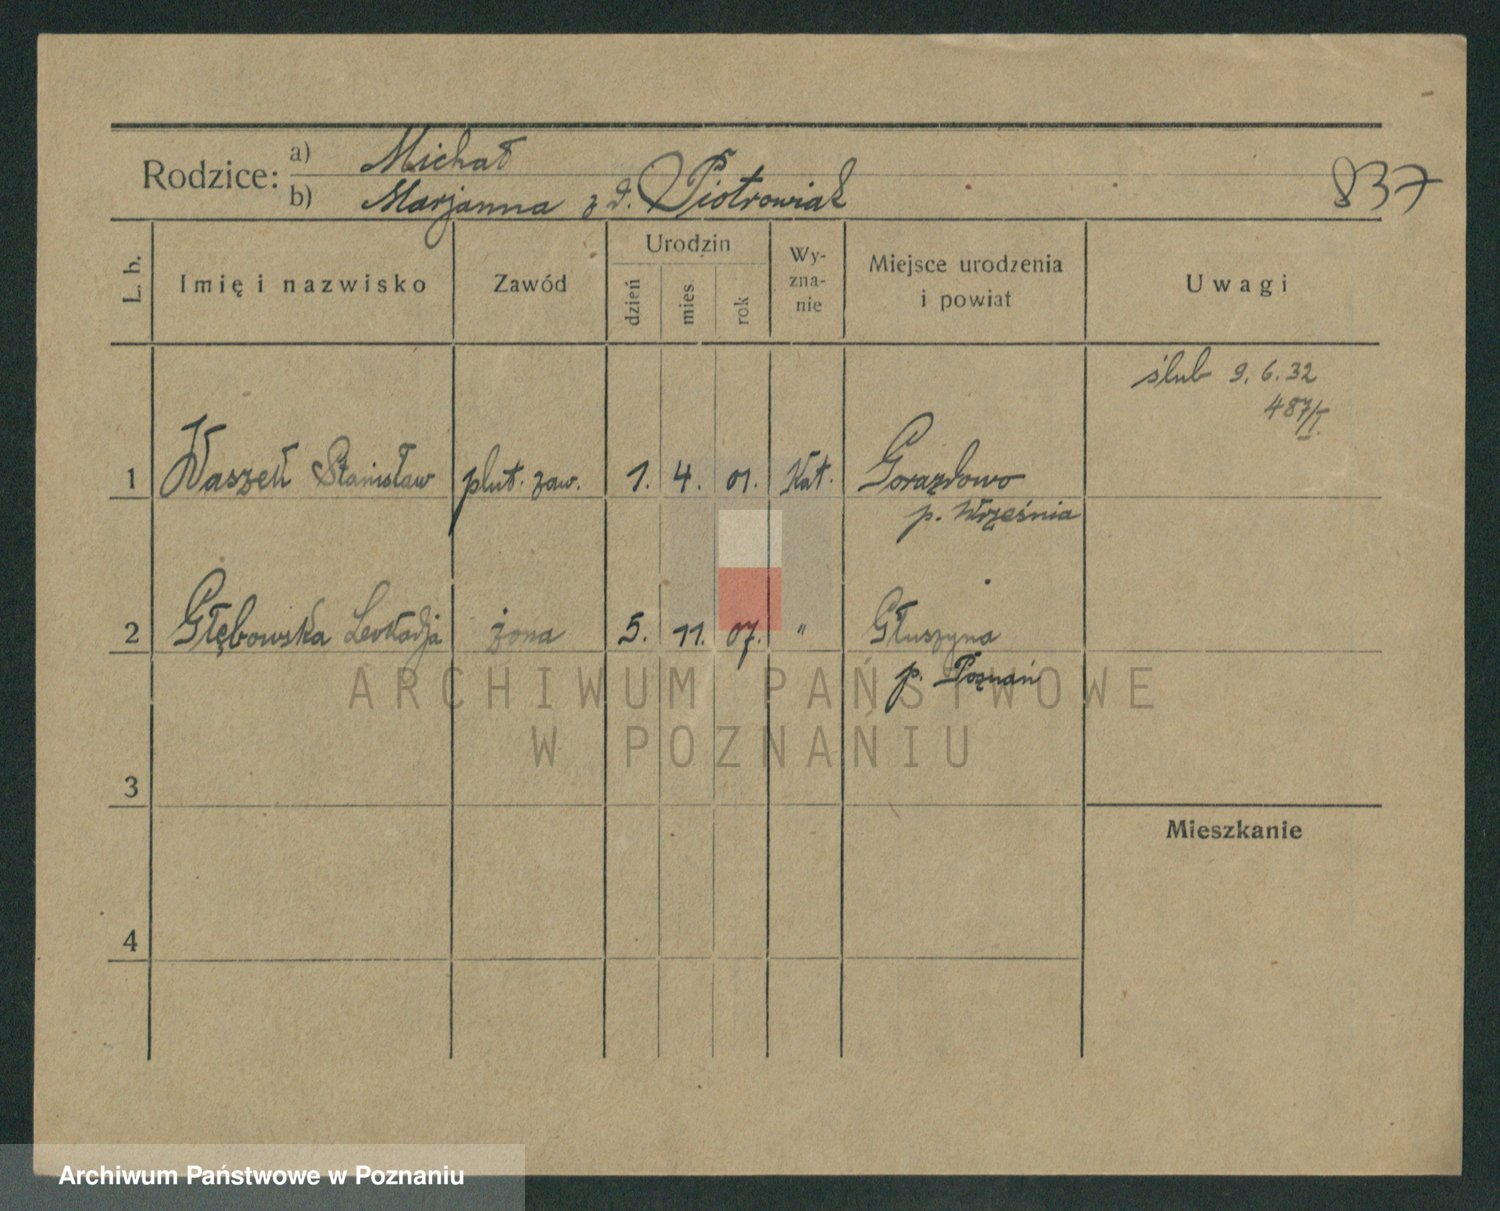 Rodzice: a) Michał
b) Marjanna z d. Piotrowiak
837
L. b.
Imię i nazwisko
Zawód
Urodzin
dzień
mies
rok
Wy-
zna-
nie
Miejsce urodzenia
i powiat
Uwagi
ślub 9. 6. 32
487/I.
1 Waszek Stanisław plut. zaw. 1. 4. 01. Kat. Gorazdowo
p. Września
2 Głębowska Leokadja żona 5. 11. 07. " Głuszyna
p. Poznań
ARCHIWUM PAŃSTWOWE
W POZNANIU
3
Mieszkanie
4
Archiwum Państwowe w Poznaniu